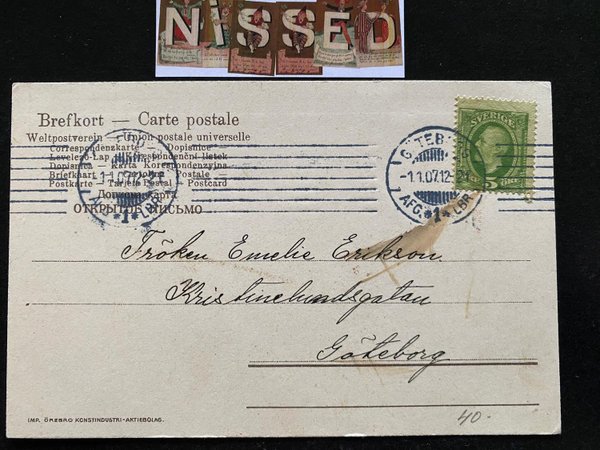 NiSSED
Brefkort — Carte postale
Weltpostverein — Union postale universelle
Correspondenzkarte Dopisnice
Levelező-Lap Korrespondenční lístek
Dopisnica Karta Korespondencyjna
Briefkaart Postale
Postkarte — Tarjeta Postal — Postcard
ОТКРЫТОЕ ПИСЬМО
1.1.07.12
AFG. 1 LBR
SVERIGE
5
GÖTEBORG
-1.1.07.12
AFG. 1 LBR
Fröken Emelie Erikson.
Kristinelundsgatan
Göteborg
IMP. ÖREBRO KONSTINDUSTRI-AKTIEBOLAG.
40-